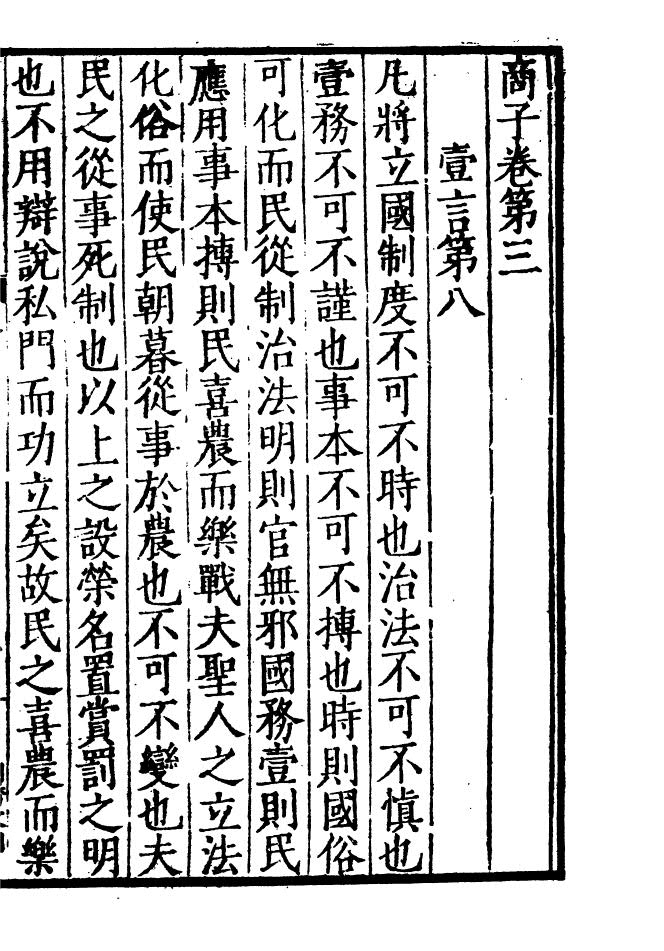 商子卷第三
壹言第八
凡將立國制度不可不時也治法不可不慎也
壹務不可不謹也事本不可不摶也時則國俗
可化而民從制治法明則官無邪國務壹則民
應用事本摶則民喜農而樂戰夫聖人之立法
化俗而使民朝暮從事於農也不可不變也夫
民之從事死制也以上之設榮名置賞罰之明
也不用辯說私門而功立矣故民之喜農而樂